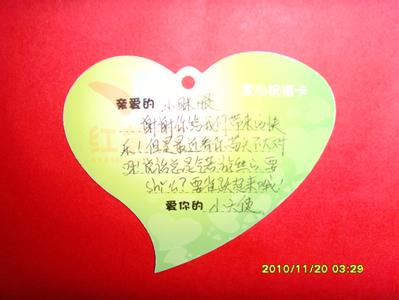 爱心祝福卡
亲爱的 小眯眼
谢谢你给我们带来的快
乐！但是最近看你苗头不大对
说话总是
shi么？要雀跃起来哦！
爱你的 小天使
2010/11/20 03:29